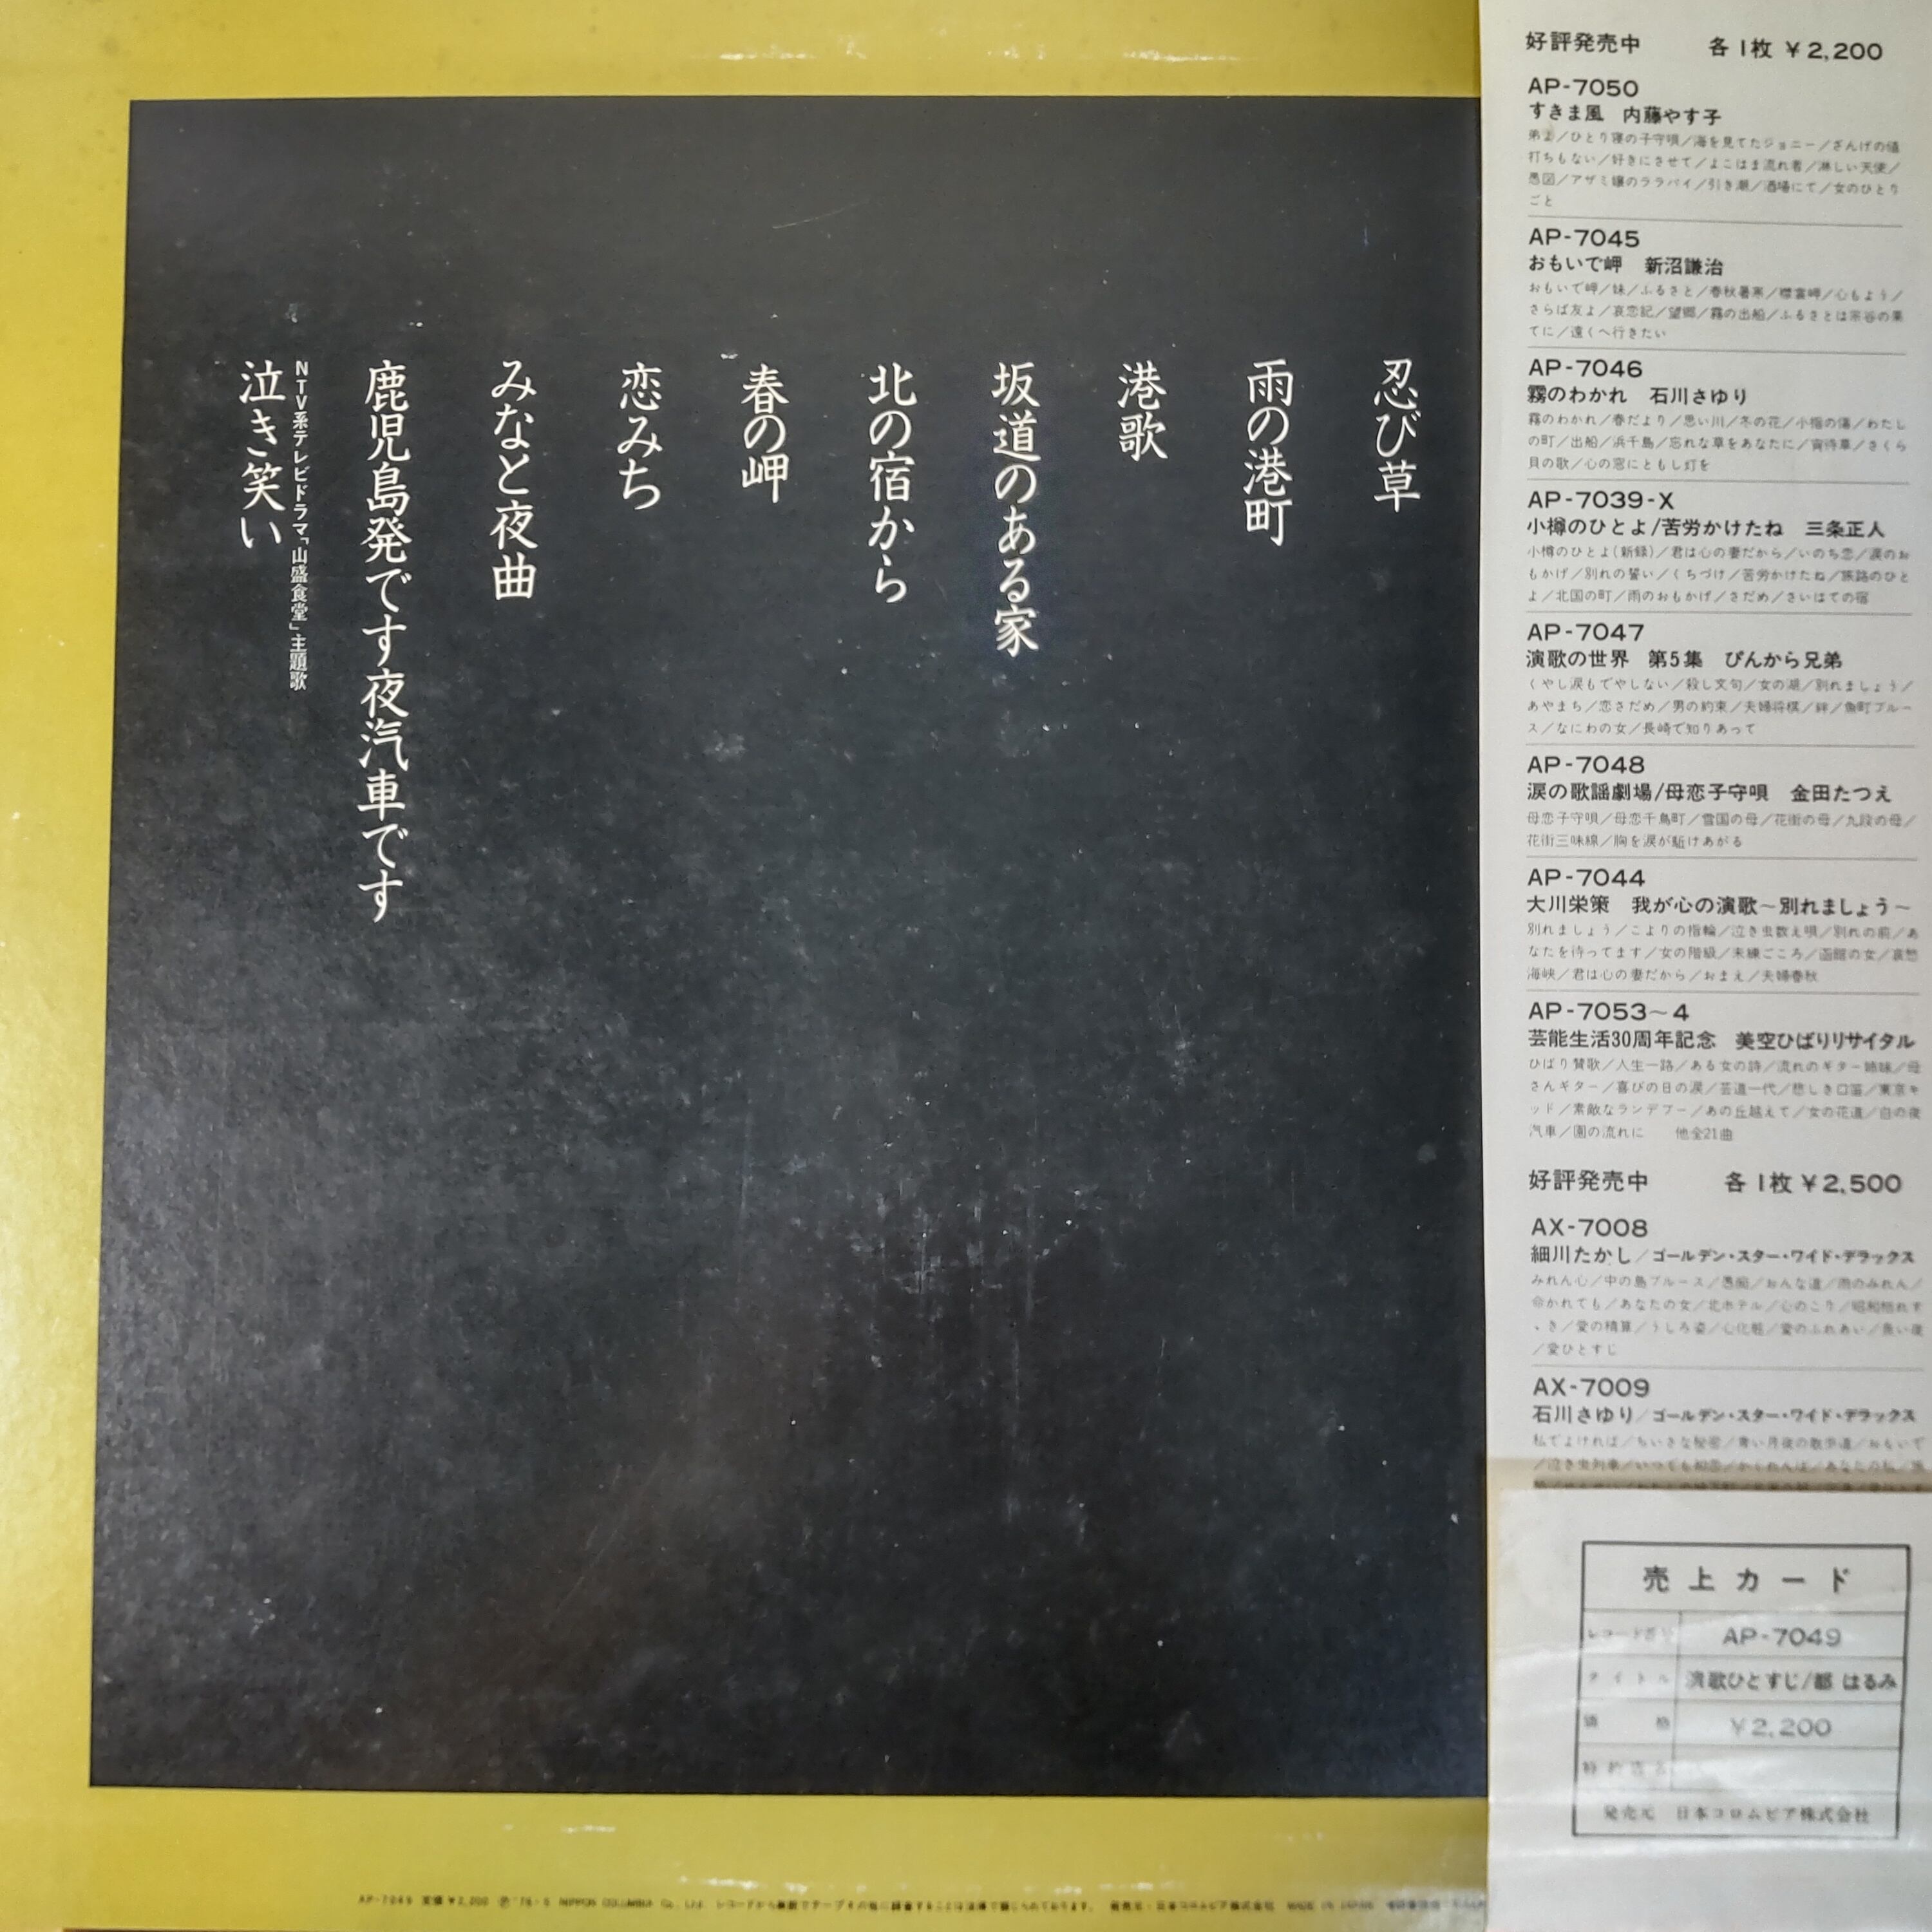 忍び草
雨の港町
港歌
坂道のある家
北の宿から
春の岬
恋みち
みなと夜曲
鹿児島発です夜汽車です
NTV系テレビドラマ「山盛食堂」主題歌
泣き笑い
好評発売中 各1枚 ¥2,200
AP-7050
すきま風 内藤やす子
弟よ／ひとり寝の子守唄／海を見てたジョニー／ざんげの値
打ちもない／好きにさせて／よこはま流れ者／淋しい天使／
愚図／アザミ嬢のララバイ／引き潮／酒場にて／女のひとり
ごと
AP-7045
おもいで岬 新沼謙治
おもいで岬／妹／ふるさと／春秋暑寒／襟裳岬／心もよう／
さらば友よ／哀恋記／望郷／霧の出船／ふるさとは宗谷の果
てに／遠くへ行きたい
AP-7046
霧のわかれ 石川さゆり
霧のわかれ／春だより／思い川／冬の花／小指の傷／わたし
の町／出船／浜千鳥／忘れな草をあなたに／宵待草／さくら
貝の歌／心の窓にともし灯を
AP-7039-X
小樽のひとよ/苦労かけたね 三条正人
小樽のひとよ(新録)／君は心の妻だから／いのち恋／涙のお
もかげ／別れの誓い／くちづけ／苦労かけたね／旅路のひと
よ／北国の町／雨のおもかげ／さだめ／さいはての宿
AP-7047
演歌の世界 第5集 ぴんから兄弟
くやし涙もでやしない／殺し文句／女の湖／別れましょう／
あやまち／恋さだめ／男の約束／夫婦将棋／絆／魚町ブルー
ス／なにわの女／長崎で知りあって
AP-7048
涙の歌謡劇場/母恋子守唄 金田たつえ
母恋子守唄／母恋千鳥町／雪国の母／花街の母／九段の母／
花街三味線／胸を涙が駈けあがる
AP-7044
大川栄策 我が心の演歌〜別れましょう〜
別れましょう／こよりの指輪／泣き虫数え唄／別れの前／あ
なたを待ってます／女の階級／未練ごころ／函館の女／哀愁
海峡／君は心の妻だから／おまえ／夫婦春秋
AP-7053〜4
芸能生活30周年記念 美空ひばりリサイタル
ひばり賛歌／人生一路／ある女の詩／流れのギター姉妹／母
さんギター／喜びの日の涙／芸道一代／悲しき口笛／東京キ
ッド／素敵なランデブー／あの丘越えて／女の花道／白の夜
汽車／園の流れに 他全21曲
好評発売中 各1枚 ¥2,500
AX-7008
細川たかし／ゴールデン・スター・ワイド・デラックス
みれん心／中の島ブルース／愚痴／おんな道／雨のみれん／
かれても／あなたの女／北ホテル／心のこり／昭和枯れす
、き／愛の精算／うしろ姿／心化粧／愛のふれあい／
／愛ひとすじ
AX-7009
石川さゆり／ゴールデン・スター・ワイド・デラックス
私でよければ／ちいさな秘密／青い月夜の散歩道／おもいで
／泣き虫列車／いつでも初恋／かくれんぼ／あなたの私／
売上カード
レコード番号 AP-7049
タイトル 演歌ひとすじ/都 はるみ
価格 ¥2,200
特約店名
発売元 日本コロムビア株式会社
AP-7049 定価¥2,200 Ⓟ'76・5 NIPPON COLUMBIA Co., Ltd. レコードから無断でテープその他に録音することは法律で禁じられております。 発売元・日本コロムビア株式会社 MADE IN JAPAN